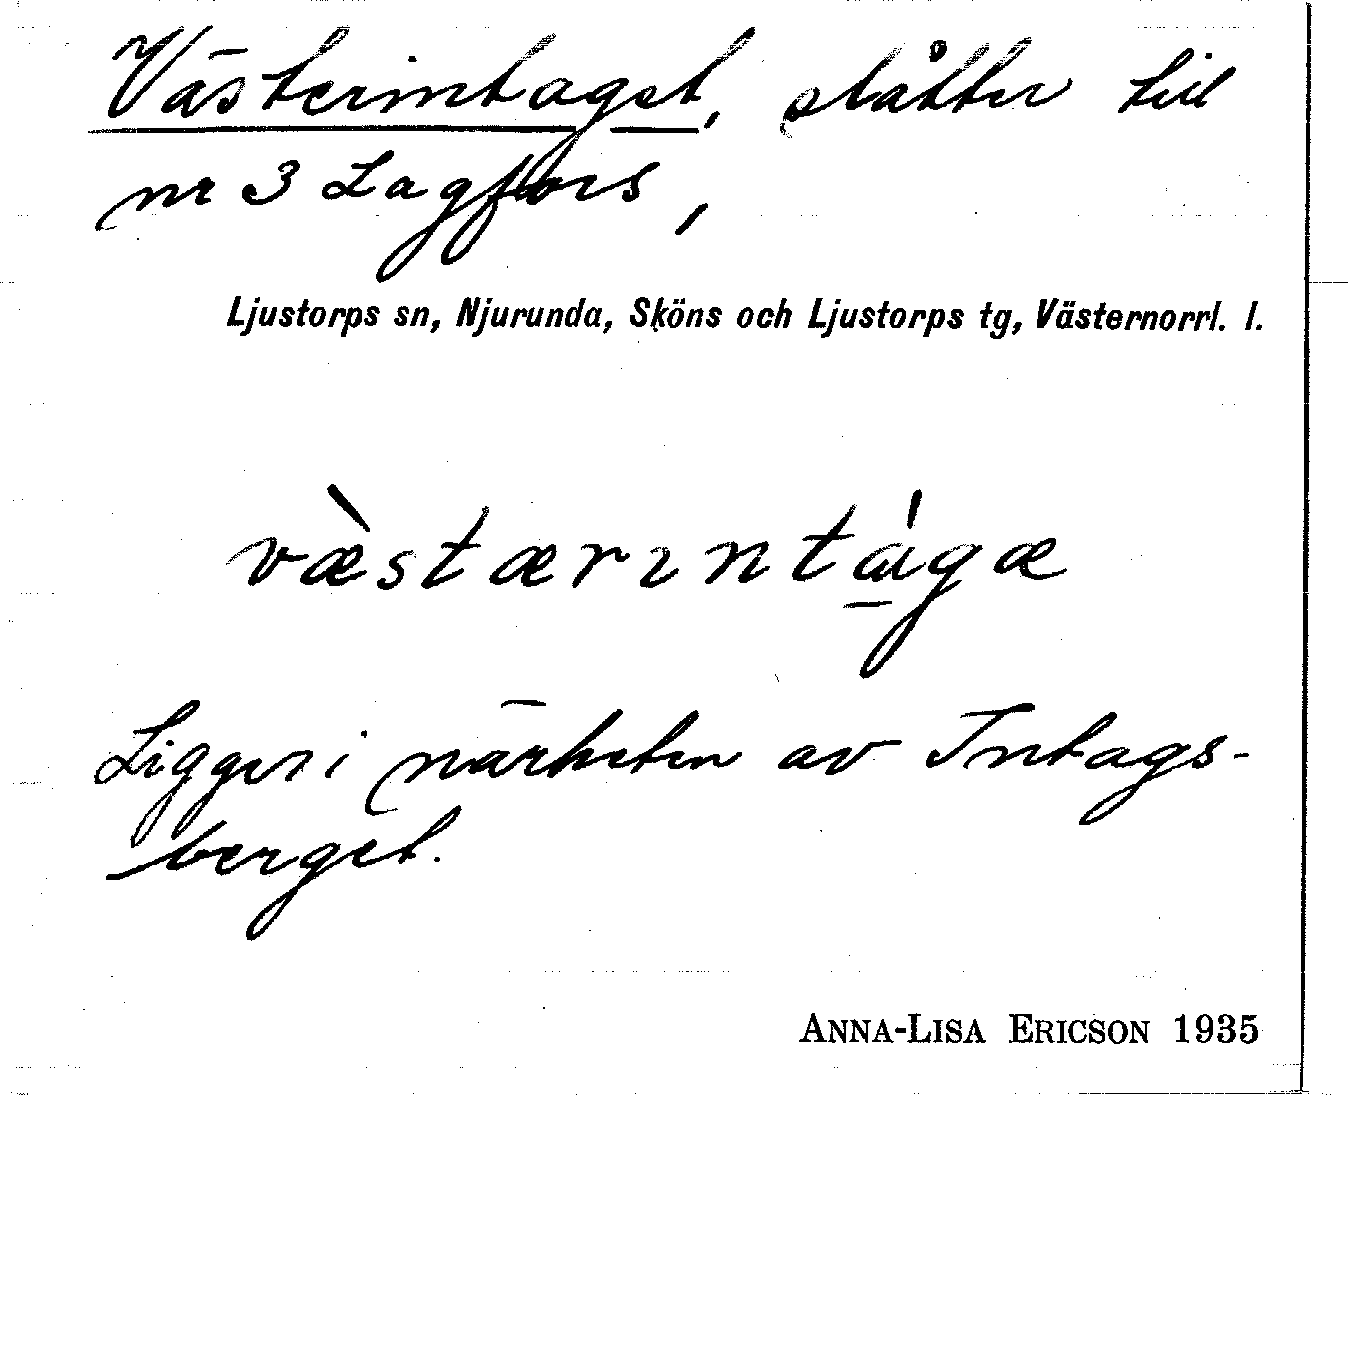 Västerintaget, slåtter till
nr 3 Lagfors,
Ljustorps sn, Njurunda, Sköns och Ljustorps tg, Västernorrl. l.
væ̀stærıntá̱gæ
Ligger i närheten av Intags-
berget.
ANNA-LISA ERICSON 1935